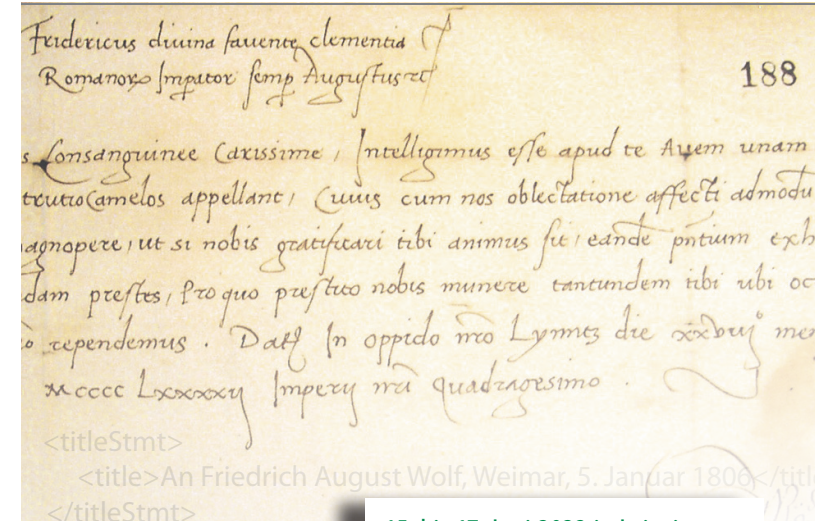 Fridericus divina favente clementia
Romanor Imperator semp Augustus rc
188
s Consanguinee Carissime, Intelligimus esse apud te Avem unam
trutioCamelos appellant, Cuius cum nos oblectatione affecti admodu
agnopere, ut si nobis gratificari tibi animus sit, eande pntium exh
dam prestes, Pro quo prestito nobis munere tantundem tibi ubi oc
rependemus. Dat In oppido nro Lynntz die xxviij me
Mcccc Lxxxxij Imperij nri Quadragesimo.
<titleStmt>
<title>An Friedrich August Wolf, Weimar, 5. Januar 1806</titl
</titleStmt>